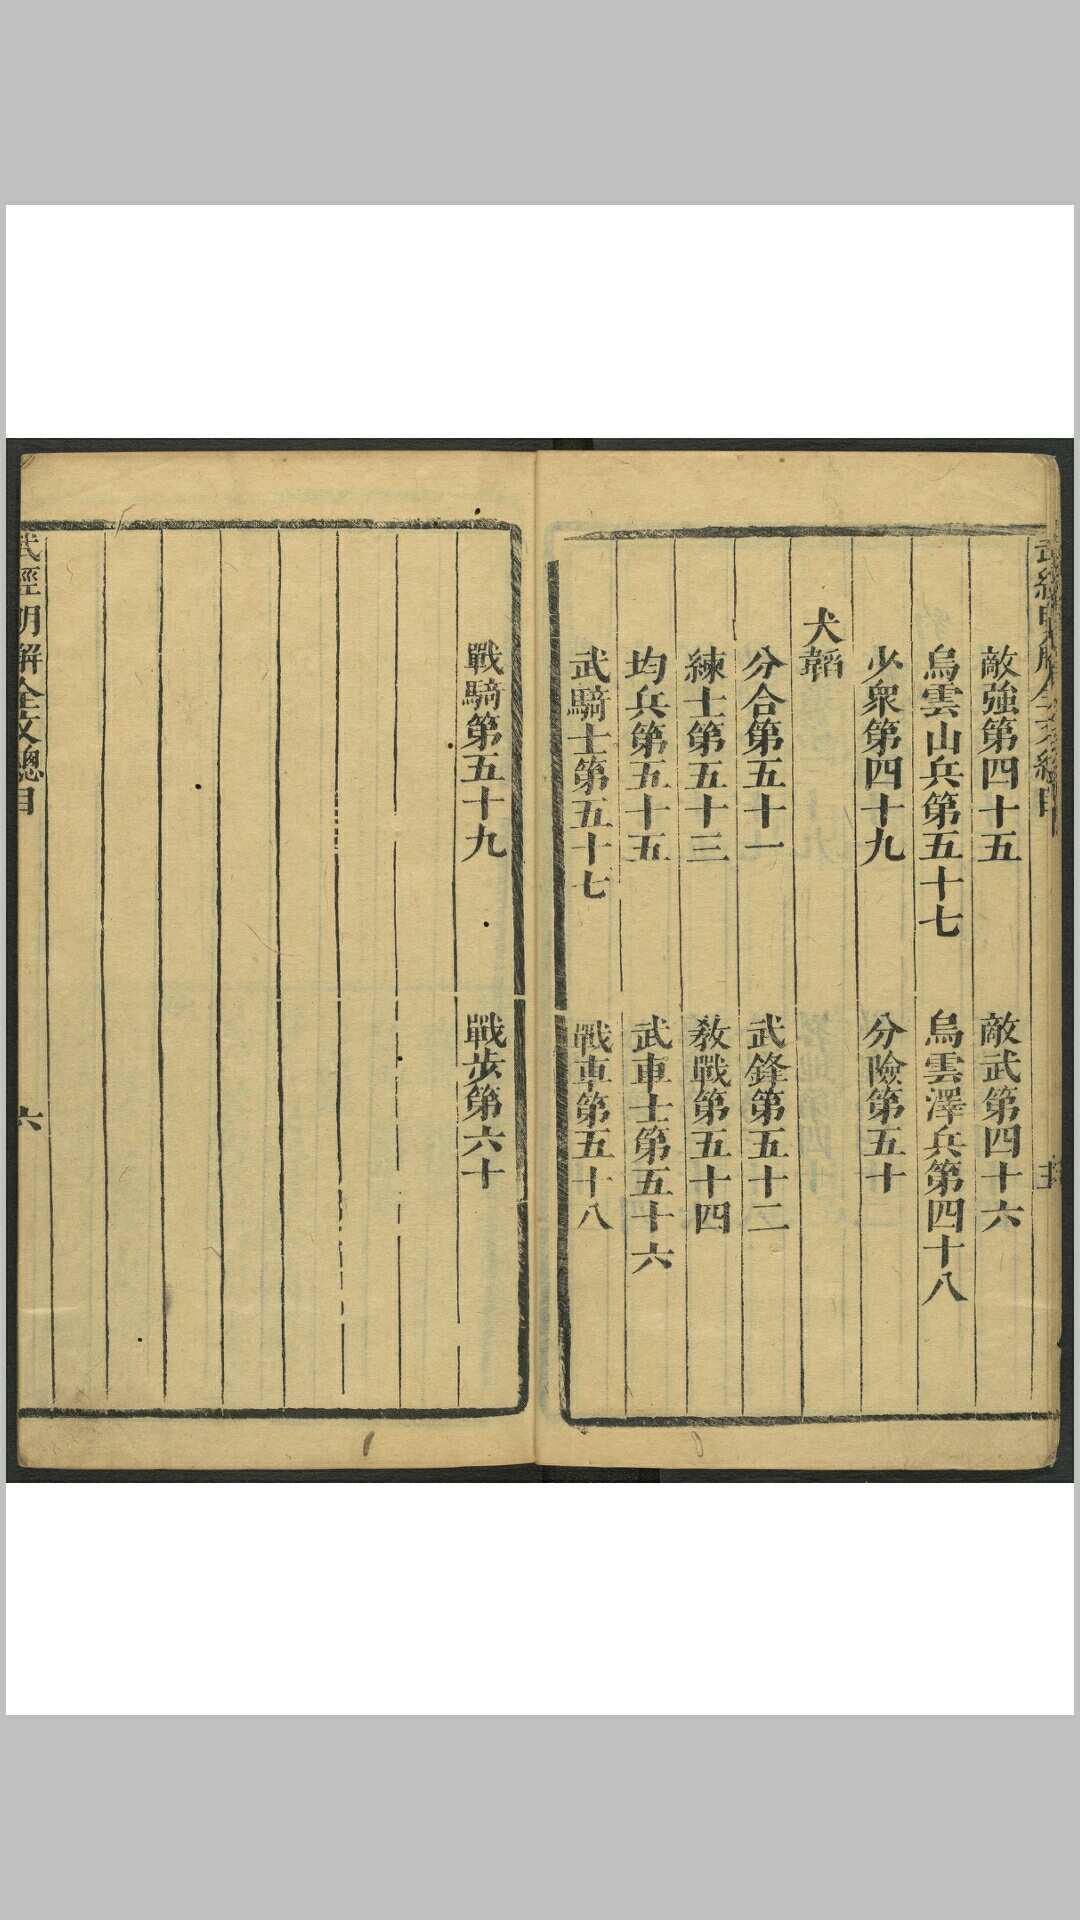 敵強第四十五　敵武第四十六
烏雲山兵第五十七　烏雲澤兵第四十八
少衆第四十九　分險第五十
犬韜
分合第五十一　武鋒第五十二
練士第五十三　敎戰第五十四
均兵第五十五　武車士第五十六
武騎士第五十七　戰車第五十八
戰騎第五十九　戰步第六十
武經明解全文總目　六